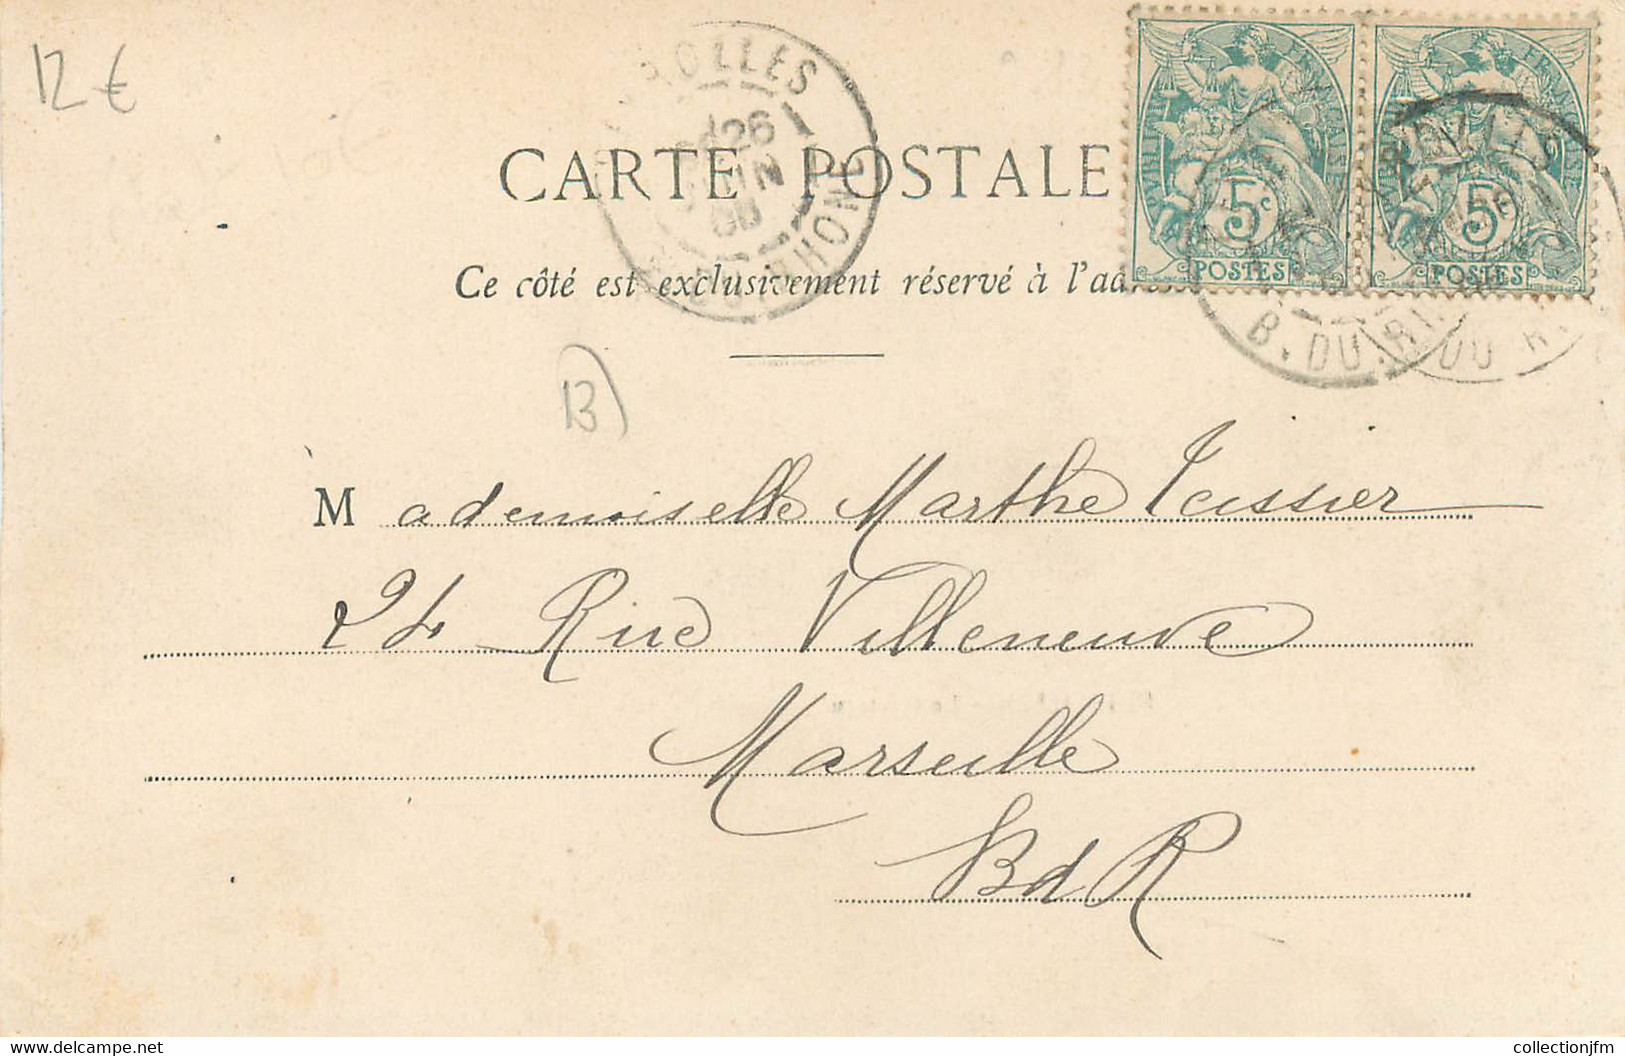 12 €
CARTE POSTALE
Ce côté est exclusivement réservé à l'adresse
RÉPUBLIQUE FRANÇAISE
5c
POSTES
5c
POSTES
26
B. DU R
13
Mademoiselle Marthe Teissier
24 Rue Villeneuve
Marseille
BdR
delcampe.net
collectionjfm